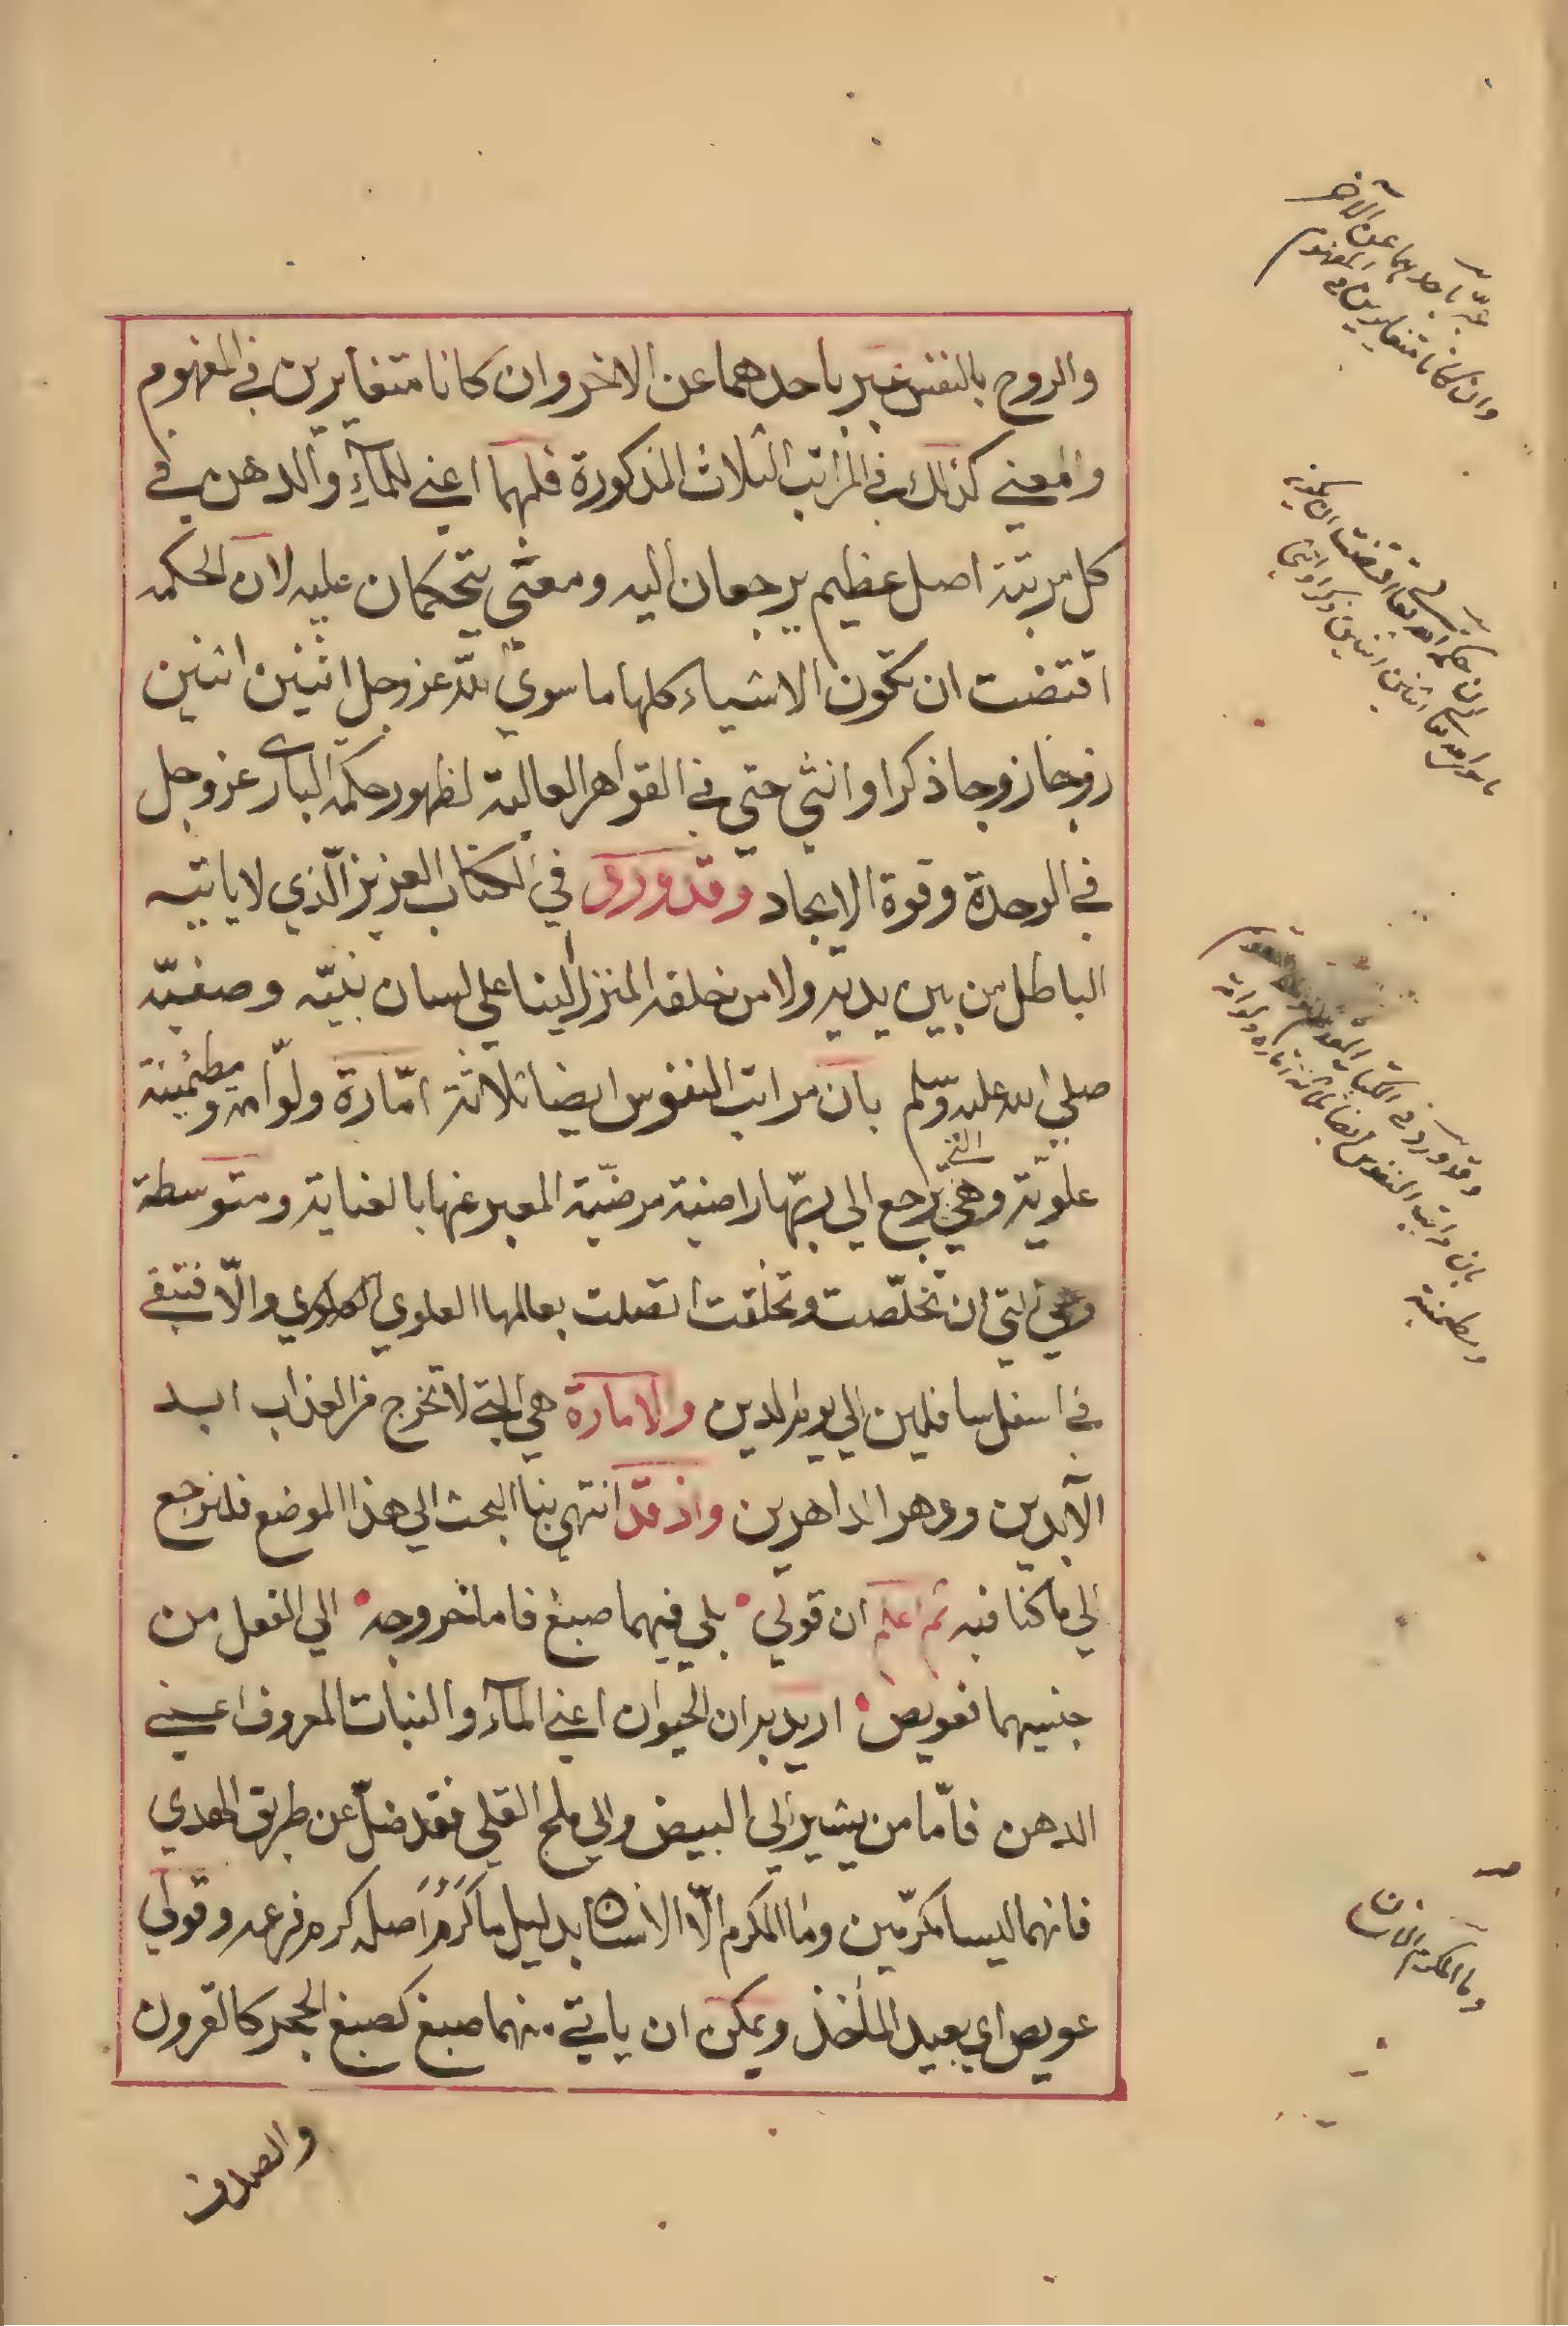 والروح بالنفس عبر باحدهما عن الاخر وان كانا متغايرين في المفهوم
والمعني كذلك في المراتب الثلاث المذكورة فلهما اعني للمآء والدهن في
كل مرتبة اصل عظيم يرجعان اليه ومعني يتحكمان عليه لان الحكمه
اقتضت ان تكون الاشياء كلها ما سوي الله عز وجل اثنين اثنين
زوجا زوجا ذكرا وانثي حتي في القواهر العالية لظهور حكمة الباري عز وجل
في الوحدة وقوة الايجاد وقد ورد في الكتاب العزيز الّذي لا ياتيه
الباطل من بين يديه ولا من خلفه المنزل الينا علي لسان نبيّه وصفيّه
صلي الله عليه وسلم بان مراتب النفوس ايضا ثلاثة امّارة ولوّامة ومطمئنة
علويّة وهي التي تراجع الي ربّها راضية مرضيّة المعبر عنها بالعناية ومتوسطة
وهي التي ان تخلّصت وتخلقت اتصلت بعالمها العلوي والّا فتبقي
في اسفل سافلين الي يوم الدين والامارة هي التي لا تخرج من العذاب ابد
الآبدين ودهر الداهرين واذ قد انتهي بنا البحث الي هذا الموضع فلنرجع
الي ما كنا فيه ثم اعلم ان قولي بلي فيهما صبغ فاما خروجه الي الفعل من
جنسيهما فعويص اريد به ان الحيوان اعني المآء والنبات المعروف اعني
الدهن فامّا من يشير الي البيض والي ملح القلي فقد ضلّ عن طريق الهدي
فانهما ليسا مكرّمين وما المكرم الّا الانسان بدليل ما كرم اصله كرم فرعه وقولي
عويص اي بعيد المأخذ ويمكن ان ياتي منهما صبغ كصبغ الحجر كالقرون
والصدف
عبّر باحدهما عن الآخر
وان كانا متغايرين في المفهوم
لان حكمة الله تعا اقتضت ان يكون
ما سوي الله تعا اثنين اثنين ذكرا وانثي
وقد ورد في الكتاب
بان مراتب النفوس ايضا ثلاثة امارة ولوامة
ومطمئنة
وما المكرم الا الانسان